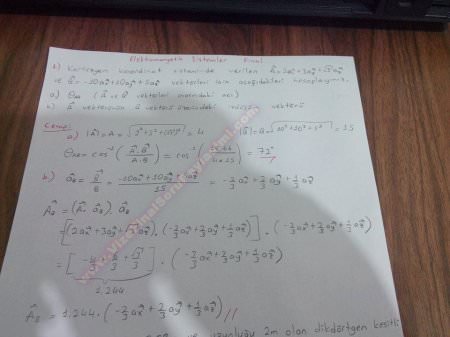 Elektromanyetik Sistemler Final
1) Kartezyen koordinat sisteminde verilen A⃗=2ax+3ay+√3az
ve B⃗=-10ax+10ay+5az vektörleri için aşağıdakileri hesaplayınız.
a) θAB (A⃗ ile B⃗ vektörleri arasındaki açı)
b) A⃗ vektörünün B⃗ vektörü üzerindeki izdüşüm vektörü
Cevap:
a) |A⃗|=A=√(2²+3²+(√3)²)=4 |B⃗|=B=√(10²+10²+5²)=15
θAB=cos⁻¹(A⃗.B⃗/A.B)=cos⁻¹(18.66/4x15)=72°
b) aB=B⃗/B=(-10ax+10ay+5az)/15=-2/3ax+2/3ay+1/3az
A⃗B=(A⃗.aB).aB
=[(2ax+3ay+√3az).(-2/3ax+2/3ay+1/3az)].(-2/3ax+2/3ay+1/3az)
=[-4/3+6/3+√3/3].(-2/3ax+2/3ay+1/3az)
1.244
A⃗B=1.244.(-2/3ax+2/3ay+1/3az)//
ve uzunluğu 2m olan dikdörtgen kesitli